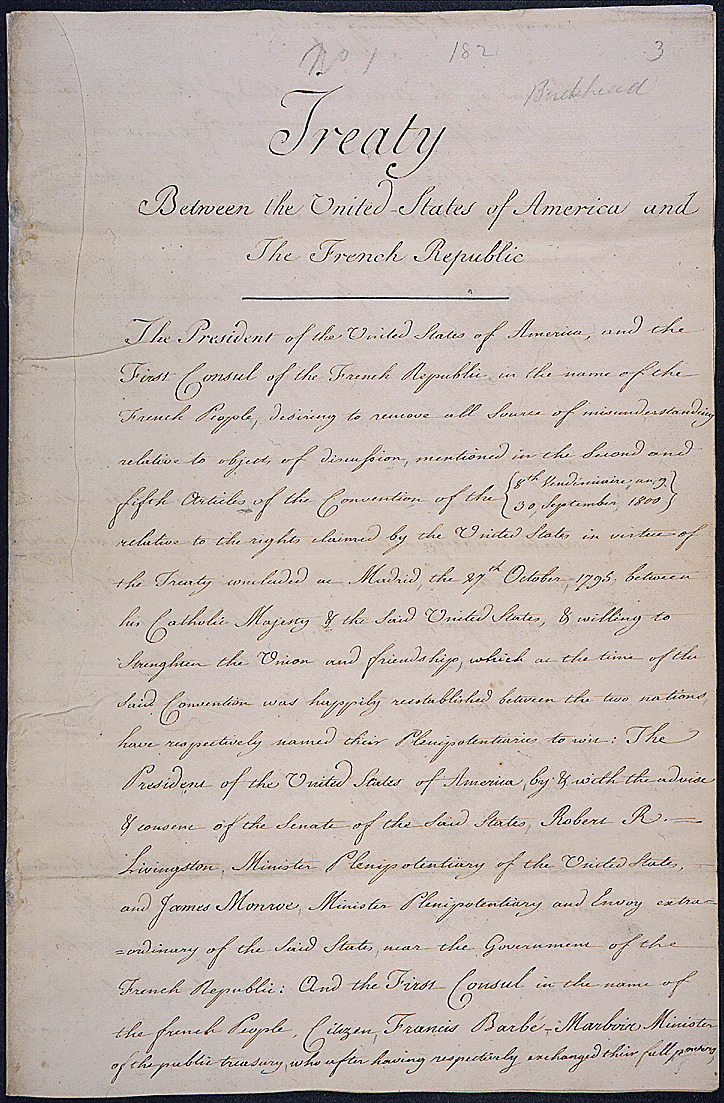 No 1 182 3
Birckhead
Treaty
Between the United States of America and
The French Republic
The President of the United States of America, and the
First Consul of the French Republic in the name of the
French People, desiring to remove all Source of misunderstanding
relative to objects of discussion, mentioned in the Second and
fifth Articles of the Convention of the {8th Vendémiaire, an 9
30, September, 1800}
relative to the rights claimed by the United States in virtue of
the Treaty concluded at Madrid, the 27th October, 1795, between
his Catholic Majesty & the Said United States, & willing to
Strenghten the Union and friendship, which at the time of the
Said Convention was happily reestablished between the two nations,
have respectively named their Plenipotentiaries to wit: The
President of the United States of America, by & with the advise
& consent of the Senate of the Said States, Robert R.
Livingston, Minister Plenipotentiary of the United States,
and James Monroe, Minister Plenipotentiary and Envoy extra=
=ordinary of the Said States, near the Government of the
French Republic: And the First Consul in the name of
the french People, Citizen, Francis Barbé-Marbois Minister
of the public treasury, who after having respectively exchanged their full powers